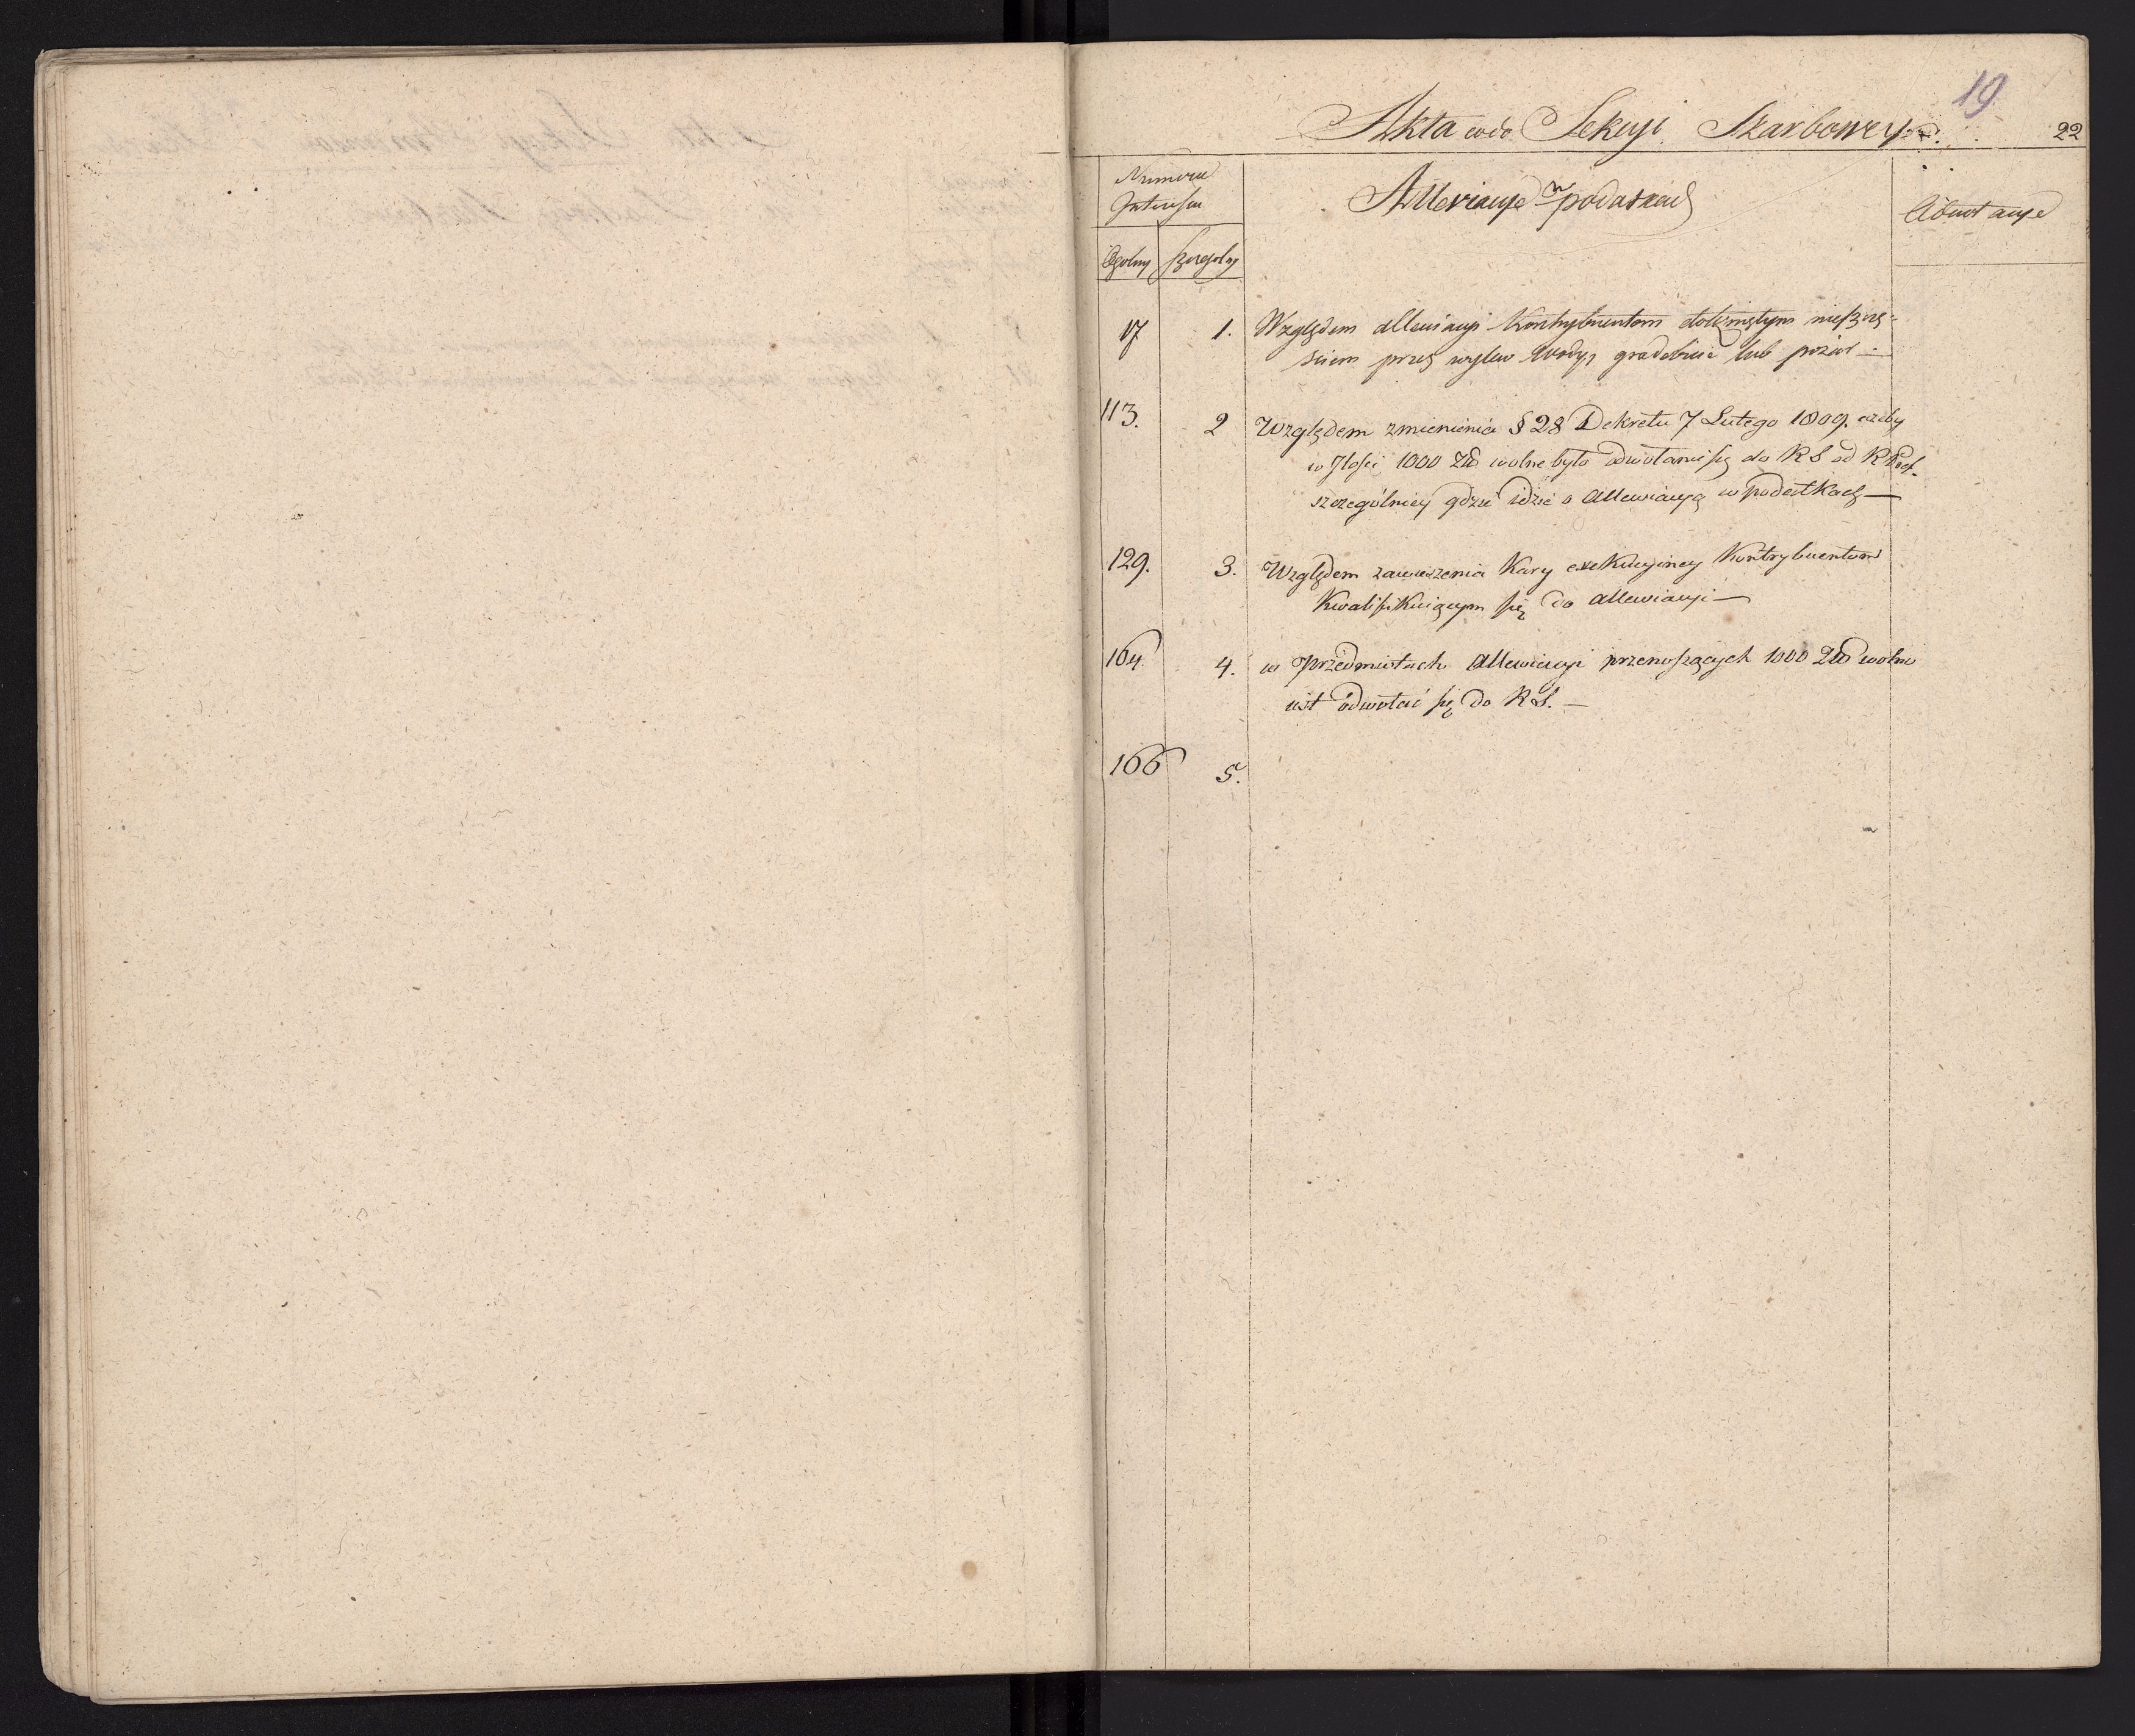 19
Akta co do Sekcyi Skarbowey.
22
Numera
Interesu
Allewiacye w podatkach
Ogolny
szczegolny
17 1. Względem allewiacyi Kontrybuentom dotkniętym nieszczę-
ściem przez wylew wody, gradobicie lub pożar —
113. 2 Względem zmienienia § 28 Dekretu 7 Lutego 1809. azeby
w Ilości 1000 Złł wolne było odwołanie się do RS od R Pref.
szczególniey gdzie idzie o Allewiacyą w podatkach —
129. 3. Względem zawieszenia Kary exekucyiney Kontrybuentom
Kwalifikuiącym się do allewiacyi —
164. 4. w przedmiotach Allewiacyi przenoszących 1000 Złł wolno
iest odwołać się do RS. —
166 5.